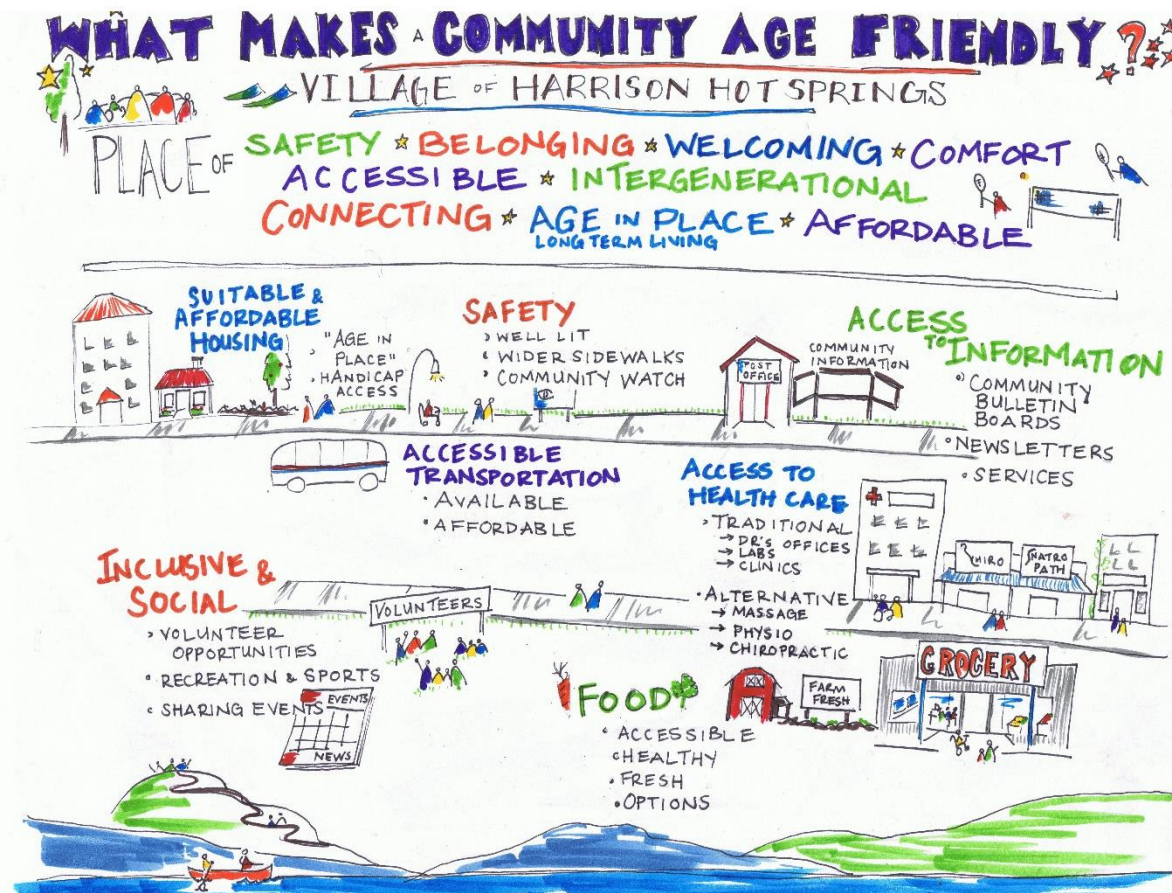 WHAT MAKES A COMMUNITY AGE FRIENDLY?
VILLAGE OF HARRISON HOT SPRINGS
PLACE OF
SAFETY * BELONGING * WELCOMING * COMFORT
ACCESSIBLE * INTERGENERATIONAL
CONNECTING * AGE IN PLACE * AFFORDABLE
LONG TERM LIVING
SUITABLE &
AFFORDABLE
HOUSING
"AGE IN
PLACE"
HANDICAP
ACCESS
SAFETY
WELL LIT
WIDER SIDEWALKS
COMMUNITY WATCH
POST
OFFICE
COMMUNITY
INFORMATION
ACCESS
TO INFORMATION
COMMUNITY
BULLETIN
BOARDS
NEWSLETTERS
SERVICES
ACCESSIBLE
TRANSPORTATION
• AVAILABLE
• AFFORDABLE
ACCESS TO
HEALTH CARE
TRADITIONAL
→ DR'S OFFICES
→ LABS
→ CLINICS
• ALTERNATIVE
→ MASSAGE
→ PHYSIO
→ CHIROPRACTIC
CHIRO
NATRO
PATH
INCLUSIVE &
SOCIAL
VOLUNTEER
OPPORTUNITIES
RECREATION & SPORTS
SHARING EVENTS
VOLUNTEERS
EVENTS
NEWS
FOOD
• ACCESSIBLE
HEALTHY
• FRESH
• OPTIONS
FARM
FRESH
GROCERY